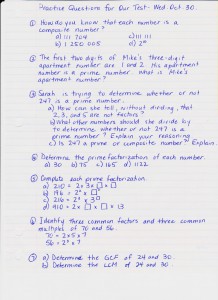 Practice Questions for Our Test - Wed. Oct. 30.
① How do you know that each number is a
composite number?
a) 111 204 c) 111 111
b) 1 250 005 d) 2⁰
② The first two digits of Mike's three-digit
apartment number are 1 and 2. His apartment
number is a prime number. What is Mike's
apartment number?
③ Sarah is trying to determine whether or not
247 is a prime number.
a) How can she tell, without dividing, that
2, 3, and 5 are not factors?
b) What other numbers should she divide by
to determine whether or not 247 is a
prime number? Explain your reasoning.
c) Is 247 a prime or composite number? Explain.
④ Determine the prime factorization of each number.
a) 30 b) 75 c) 165 d) 1122
⑤ Complete each prime factorization.
a) 210 = 2 × 3 × □ × □
b) 196 = 2 × □
c) 216 = 2 × 3
d) 910 = 2 × □ × □ × 13
⑥ Identify three common factors and three common
multiples of 70 and 56.
70 = 2 × 5 × 7
56 = 2³ × 7
⑦ a) Determine the GCF of 24 and 30.
b) Determine the LCM of 24 and 30.